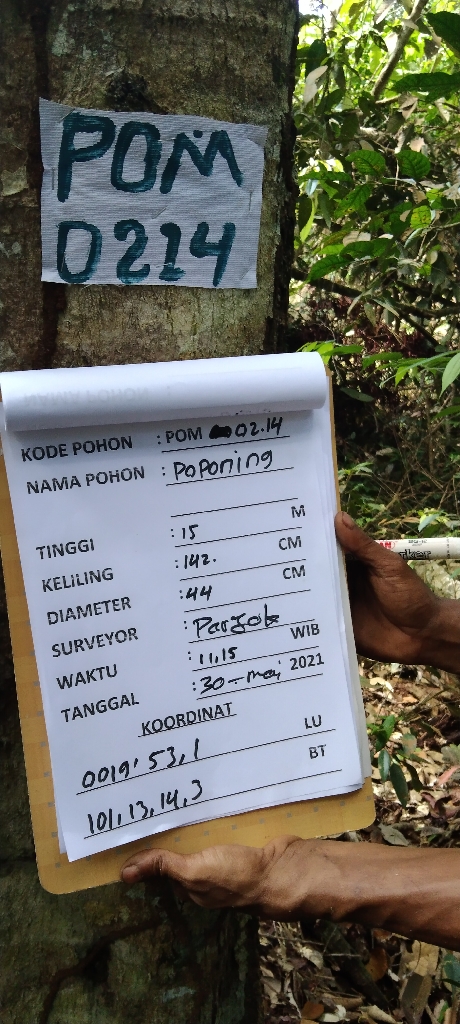 POM
0214
KODE POHON : POM 02.14
NAMA POHON : Poponing
M
TINGGI : 15
CM
KELILING : 142.
CM
DIAMETER : 44
SURVEYOR :
WAKTU : 11,15 WIB
TANGGAL : 30-mei 2021
KOORDINAT
0019' 53,1 LU
101,13,14,3 BT